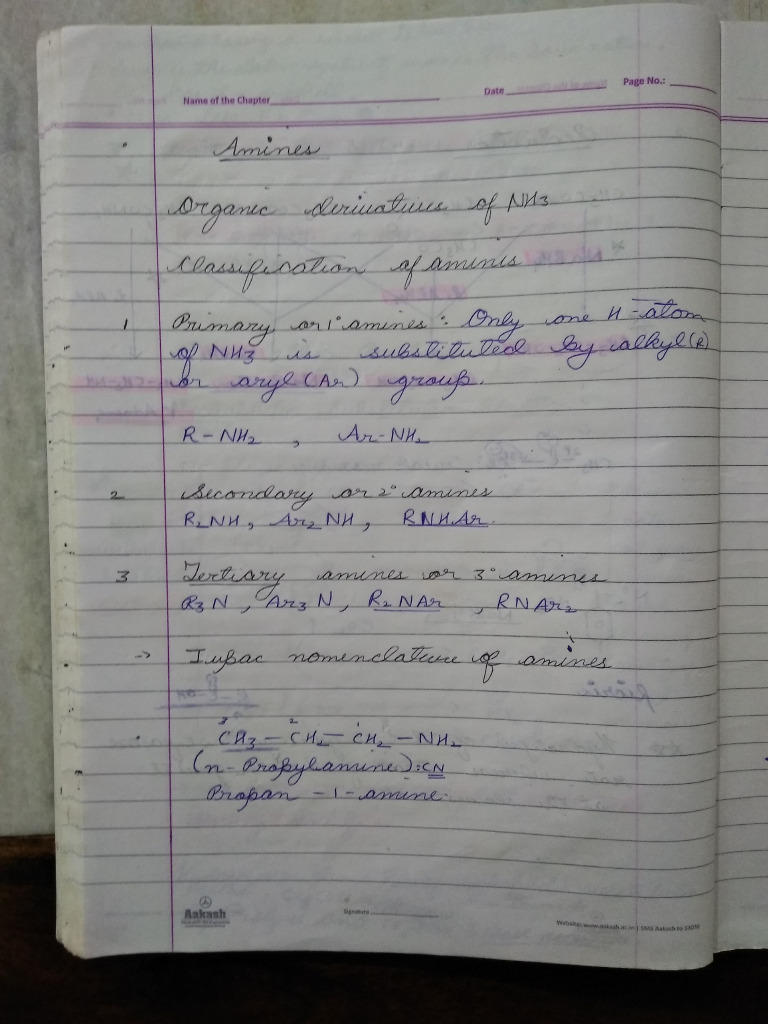 Name of the Chapter
Date
Page No.:
Amines
Organic derivatives of NH3
Classification of amines
1 Primary or 1° amines : Only one H-atom
of NH3 is substituted by alkyl (R)
or aryl (Ar) group.
R-NH2 , Ar-NH2
2 Secondary or 2° amines
R2NH, Ar2NH, RNHAr.
3 Tertiary amines or 3° amines
R3N, Ar3N, R2NAr, RNAr2
→ Iupac nomenclature of amines
3 2 1
CH3 - CH2 - CH2 - NH2
(n-Propylamine):CN
Propan-1-amine.
Aakash
Signature
Website: www.aakash.ac.in | SMS Aakash to